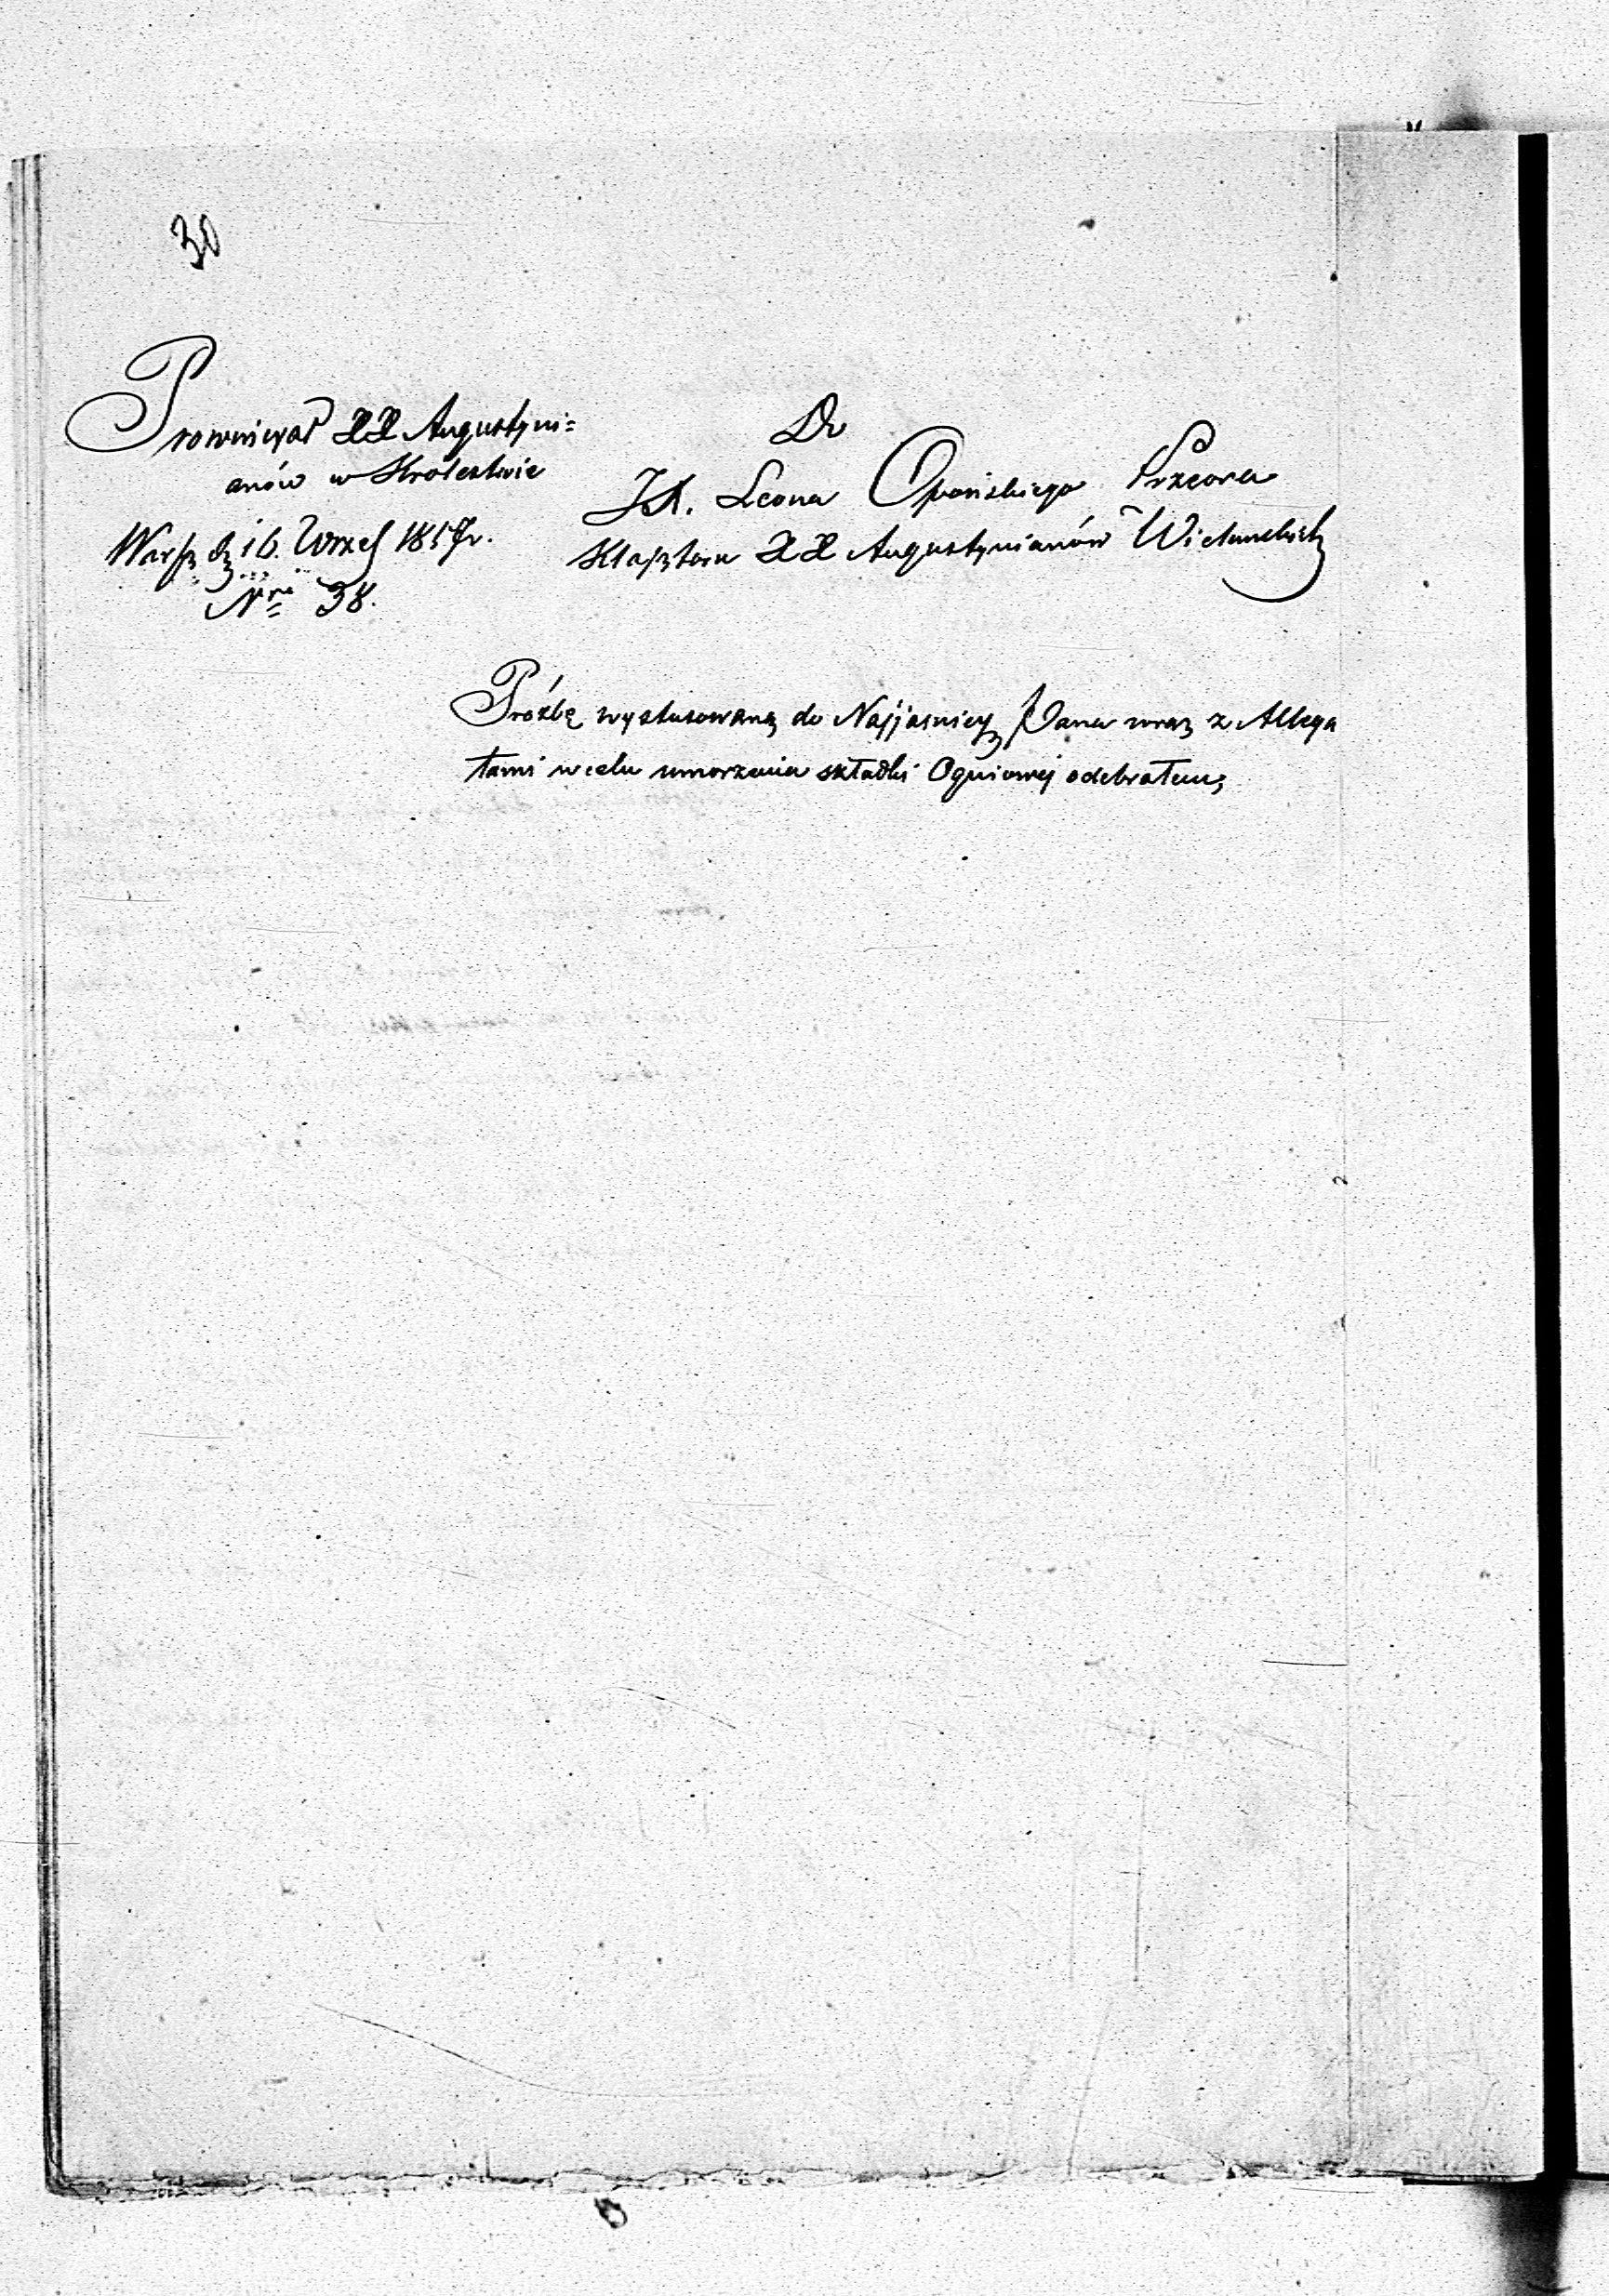 30
Prowincyał XX Augustyni=
anów w Krolestwie
Warsz. d. 16. Wrześ 1857r.
Nro 38.
Do
JX. Leona Opońskiego Przeora
Klasztoru XX Augustynianów Wieluńskich
Próżbę wystusowaną do Najjaśniejszego Pana wraz z Allega
tami w celu umorzenia składki Ogniowej odebrałem,